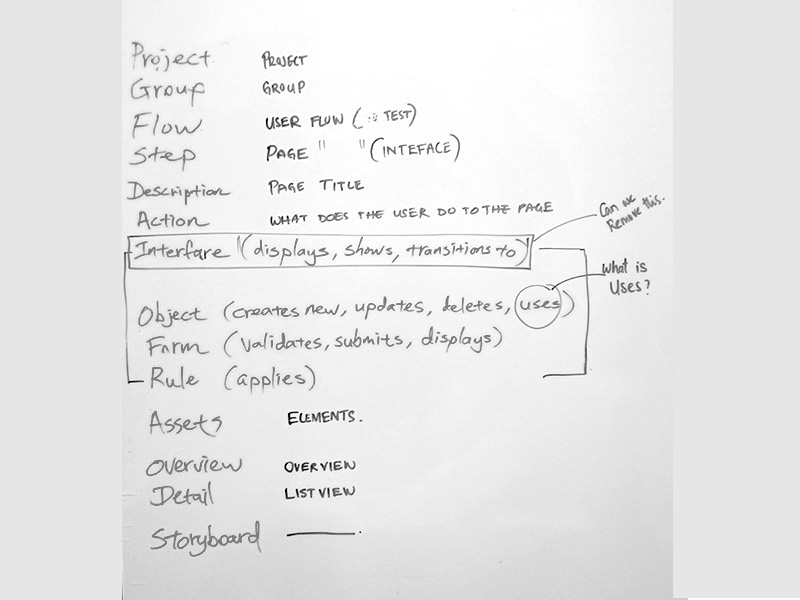 Project PROJECT
Group GROUP
Flow USER FLOW (:: TEST)
Step PAGE " " (INTEFACE)
Description PAGE TITLE
Action WHAT DOES THE USER DO TO THE PAGE
Can we
Remove this.
Interfare "(displays, shows, transitions to)
What is
Uses?
Object (creates new, updates, deletes, uses)
Form (validates, submits, displays)
Rule (applies)
Assets ELEMENTS.
Overview OVERVIEW
Detail LIST VIEW
Storyboard